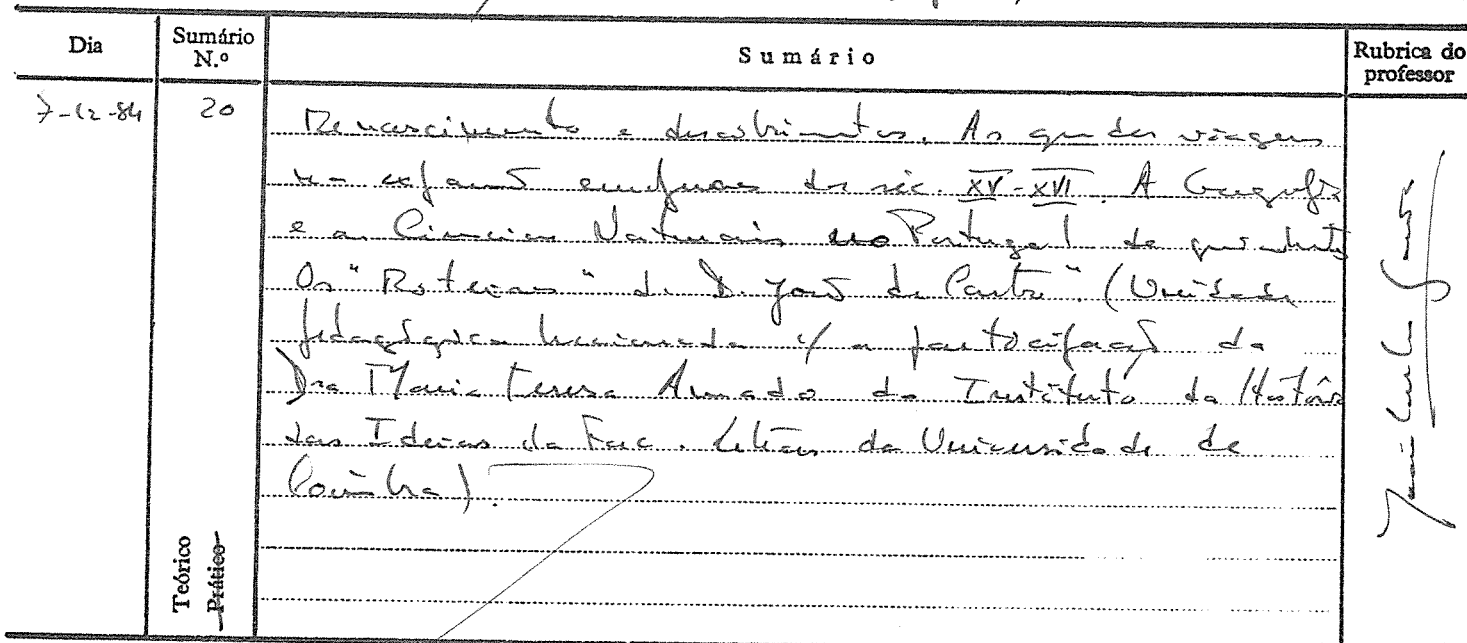 Dia Sumário N.º Sumário Rubrica do professor
7-12-84 20 Renascimento e descobrimentos. As grandes viagens
na expansão dos séc. XV-XVI. A Geografia
e as Ciencias Naturais no Portugal de quinhentos
Os "Roteiros" de D. João de Castro". (Unidade
pedagógica leccionada c/ a participação da
Dra Maria Teresa Amado do Instituto da História
das Ideias da Fac. Letras da Universidade de
Coimbra).
Teórico
Prático